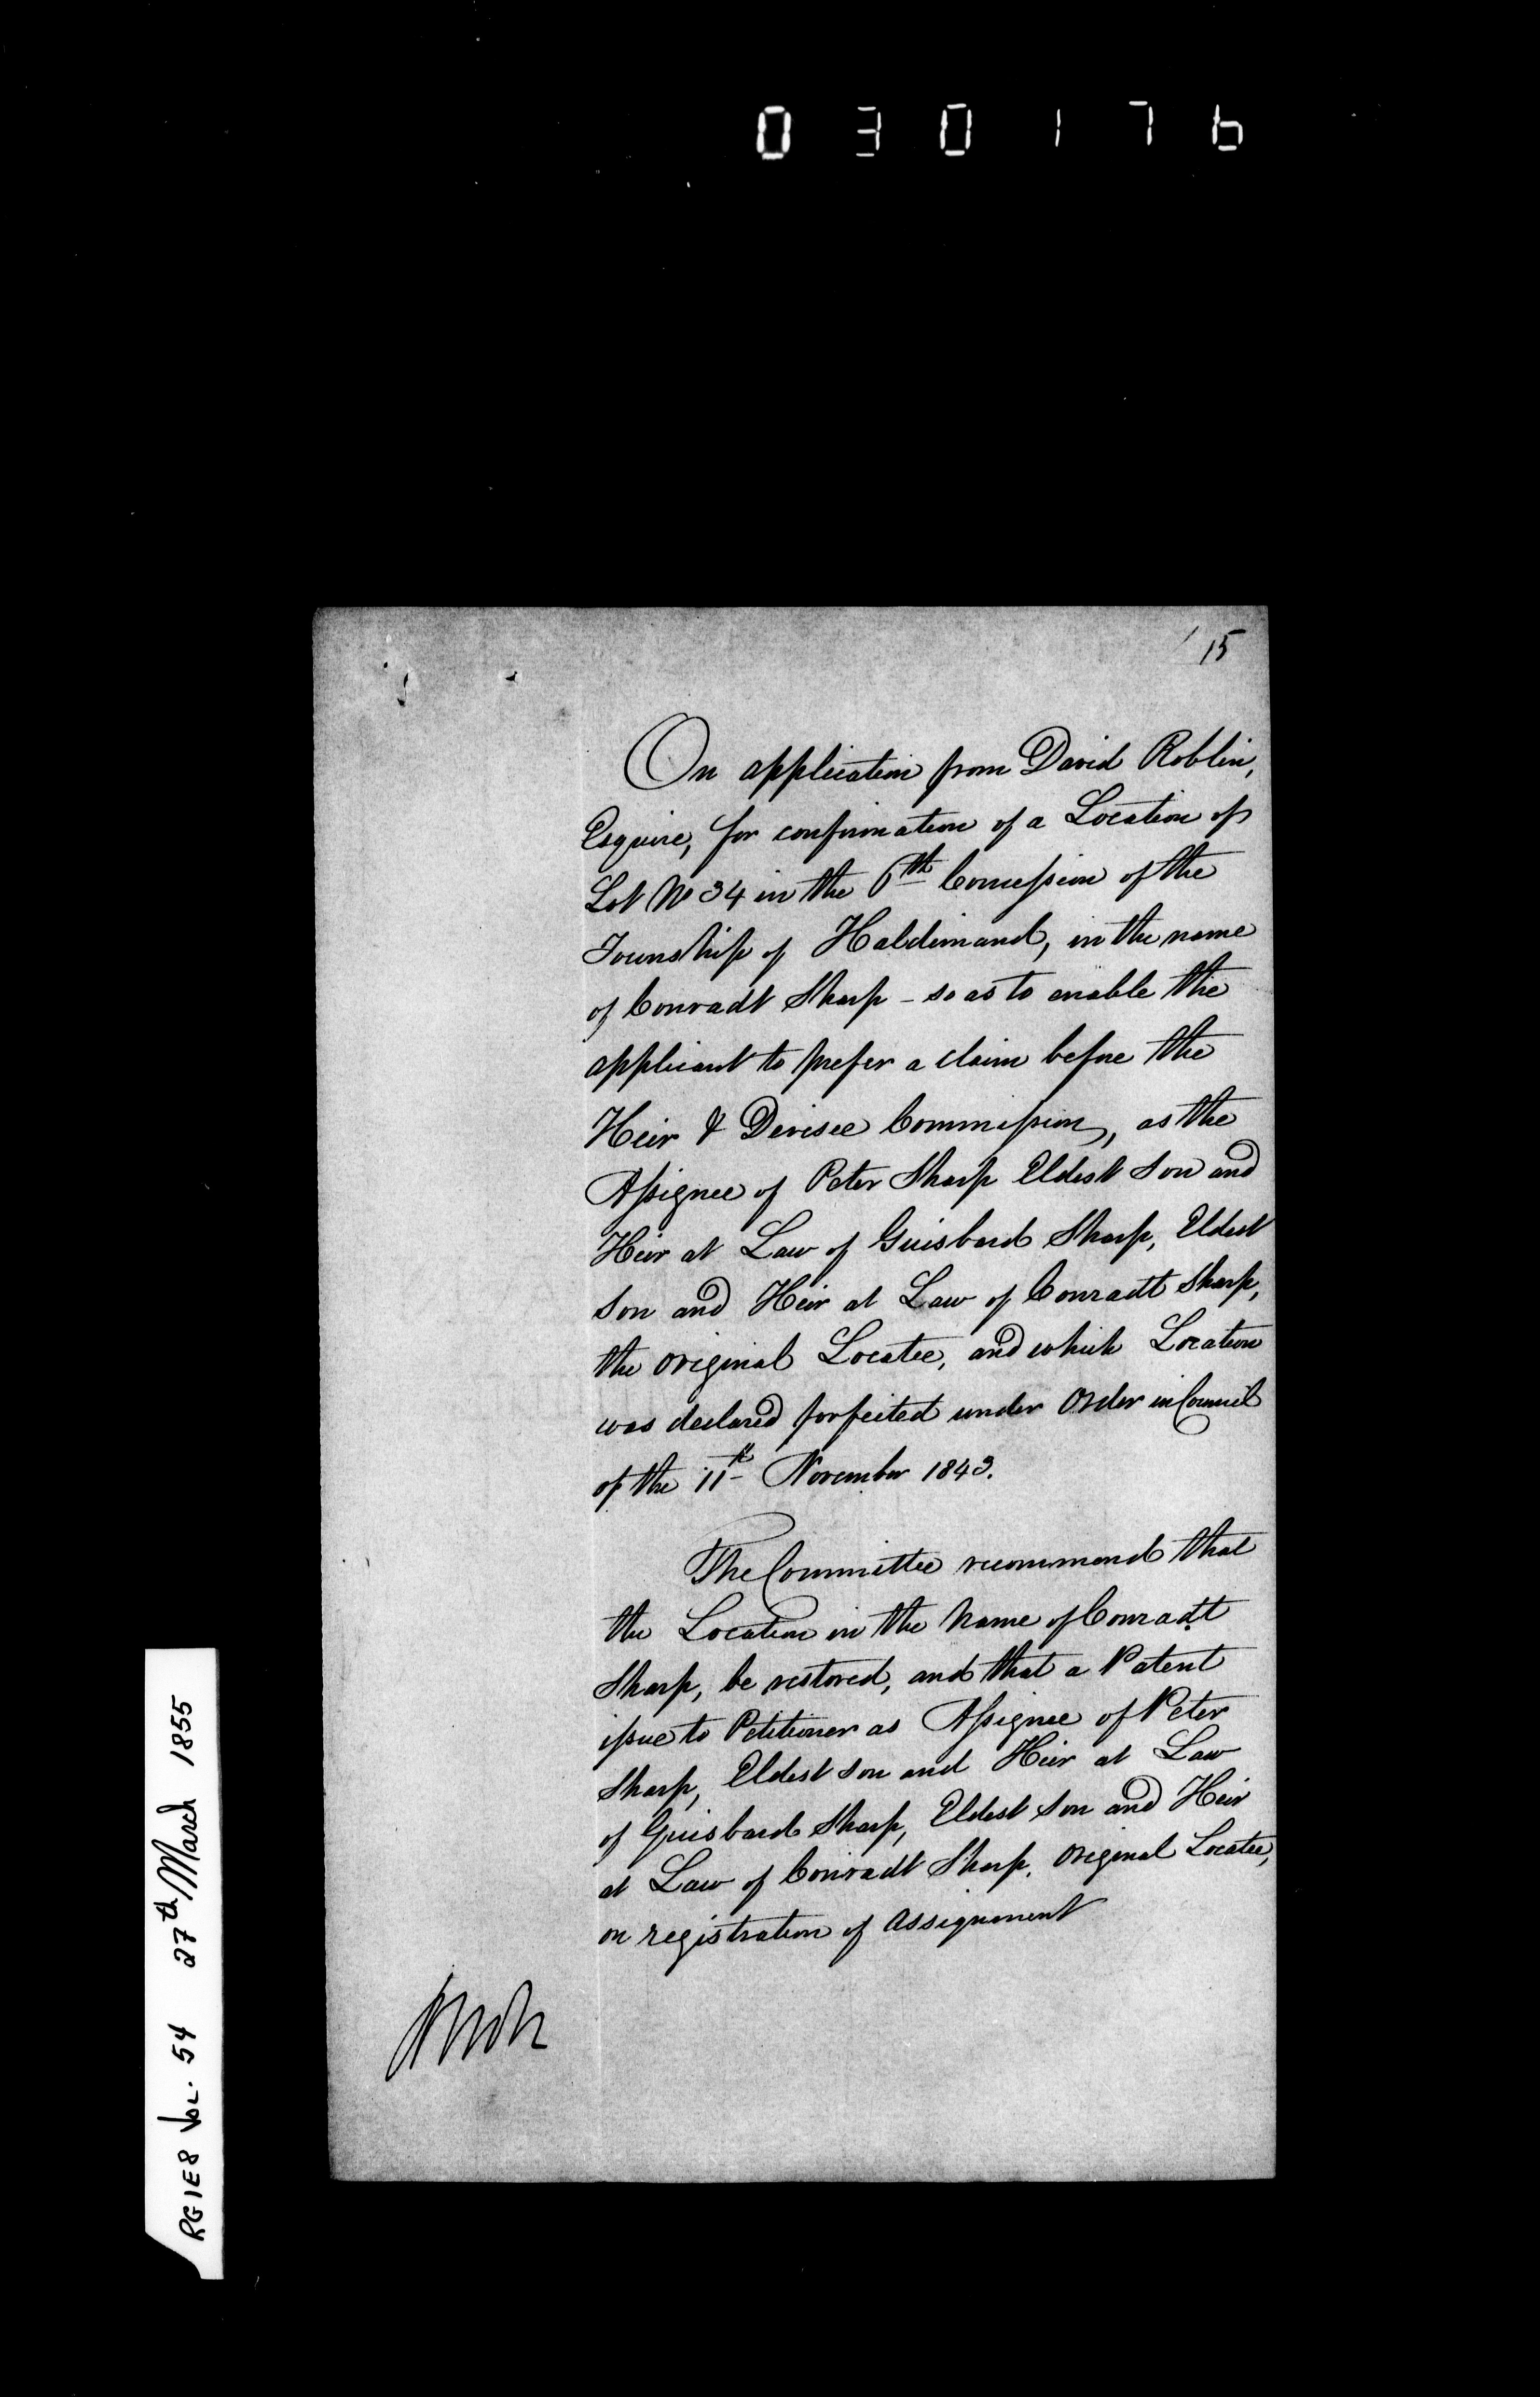 030176
15
On application from David Roblin,
Esquire, for confirmation of a Location of
Lot No 34 in the 6th Concession of the
Township of Haldimand, in the name
of Conradt Sharp - so as to enable the
applicant to prefer a claim before the
Heir & Devisee Commission, as the
Assignee of Peter Sharp Eldest Son and
Heir at Law of Guisbard Sharp, Eldest
Son and Heir at Law of Conradt Sharp,
the original Locatee, and which Location
was declared forfeited under Order in Council
of the 11th November 1843.
The Committee recommend that
the Location in the Name of Conradt
Sharp, be restored, and that a Patent
issue to Petitioner as Assignee of Peter
Sharp, Eldest Son and Heir at Law
of Guisbard Sharp, Eldest Son and Heir
at Law of Conradt Sharp, original Locatee,
on registration of assignment
RG1E8 Vol. 54 27th March 1855